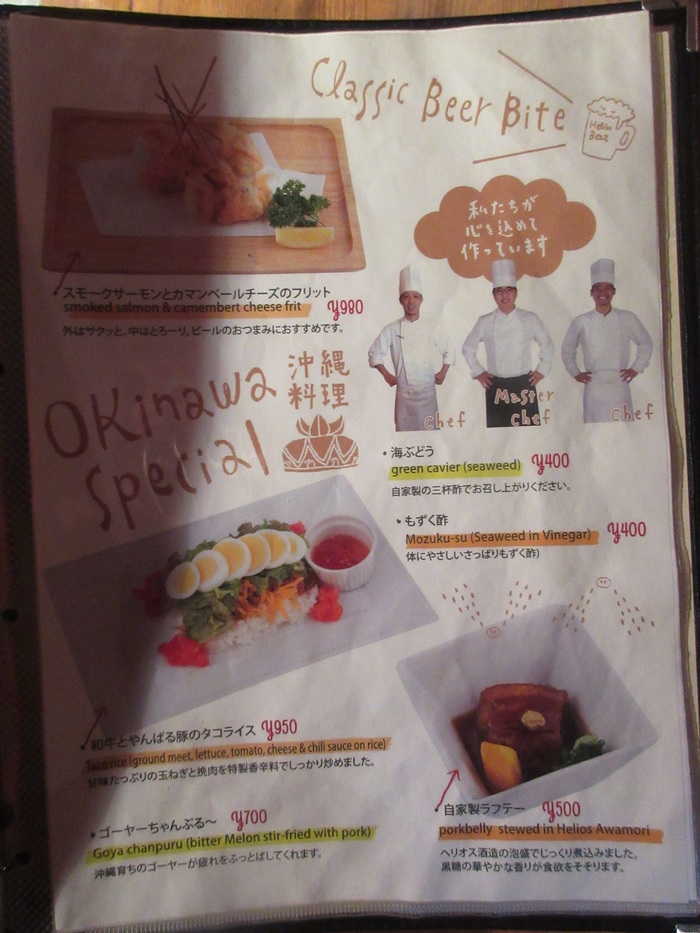 Classic Beer Bite
Helios
Beer
私たちが
心を込めて
作っています
スモークサーモンとカマンベールチーズのフリット
smoked salmon & camembert cheese frit ¥980
外はサクッと、中はとろーり。ビールのおつまみにおすすめです。
chef
Master
chef
chef
Okinawa
Special
沖縄
料理
・海ぶどう
green cavier (seaweed) ¥400
自家製の三杯酢でお召し上がりください。
・もずく酢
Mozuku-su (Seaweed in Vinegar) ¥400
体にやさしいさっぱりもずく酢)
和牛とやんばる豚のタコライス ¥950
Taco rice (ground meet, lettuce, tomato, cheese & chili sauce on rice)
甘味たっぷりの玉ねぎと挽肉を特製香辛料でしっかり炒めました。
・ゴーヤーちゃんぷる〜 ¥700
Goya chanpuru (bitter Melon stir-fried with pork)
沖縄育ちのゴーヤーが疲れをふっとばしてくれます。
自家製ラフテー ¥500
porkbelly stewed in Helios Awamori
ヘリオス酒造の泡盛でじっくり煮込みました。
黒糖の華やかな香りが食欲をそそります。